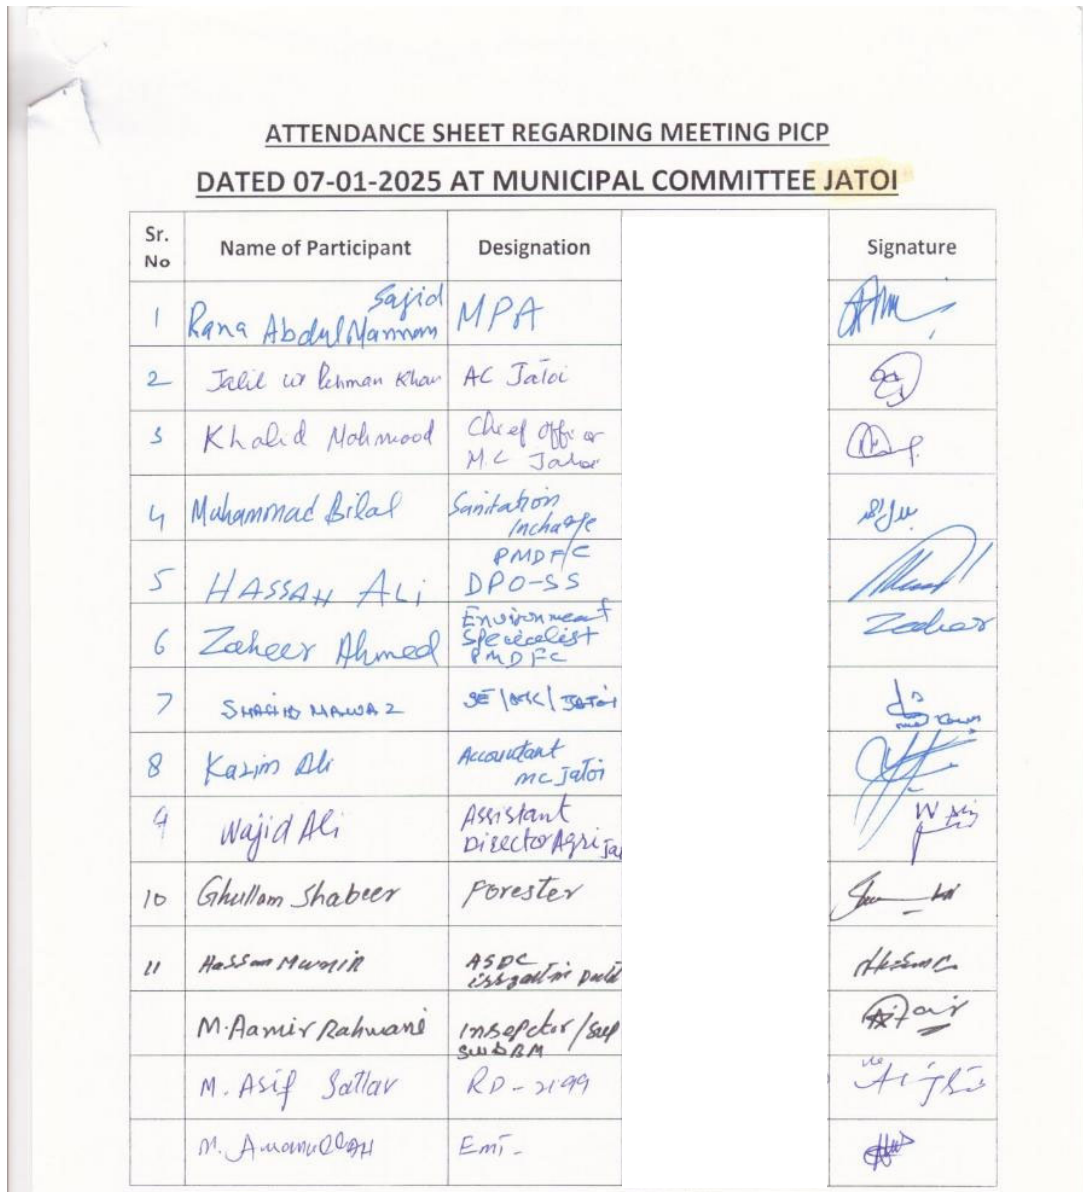 ATTENDANCE SHEET REGARDING MEETING PICP
DATED 07-01-2025 AT MUNICIPAL COMMITTEE JATOI
Sr. No Name of Participant Designation Signature
1 Rana Abdul Mannan Sajid MPA
2 Jalil ur Rehman Khan AC Jatoi
3 Khalid Mahmood Chief Officer MC Jatoi
4 Muhammad Bilal Sanitation Incharge
5 HASSAN ALi PMDFC DPO-SS
6 Zaheer Ahmed Environment Specialist PMDFC Zaheer
7 SHAHID NAWAZ SE / / JATOI
8 Kazim Ali Accountant MC Jatoi
9 Wajid Ali Assistant Director Agri Ja W Ali
10 Ghullam Shabeer Forester
11 Hassan Munir ASDC
M. Aamir Rahwani Insepctor /
M. Asif Sattar RD-
M. Amanullah EmT-